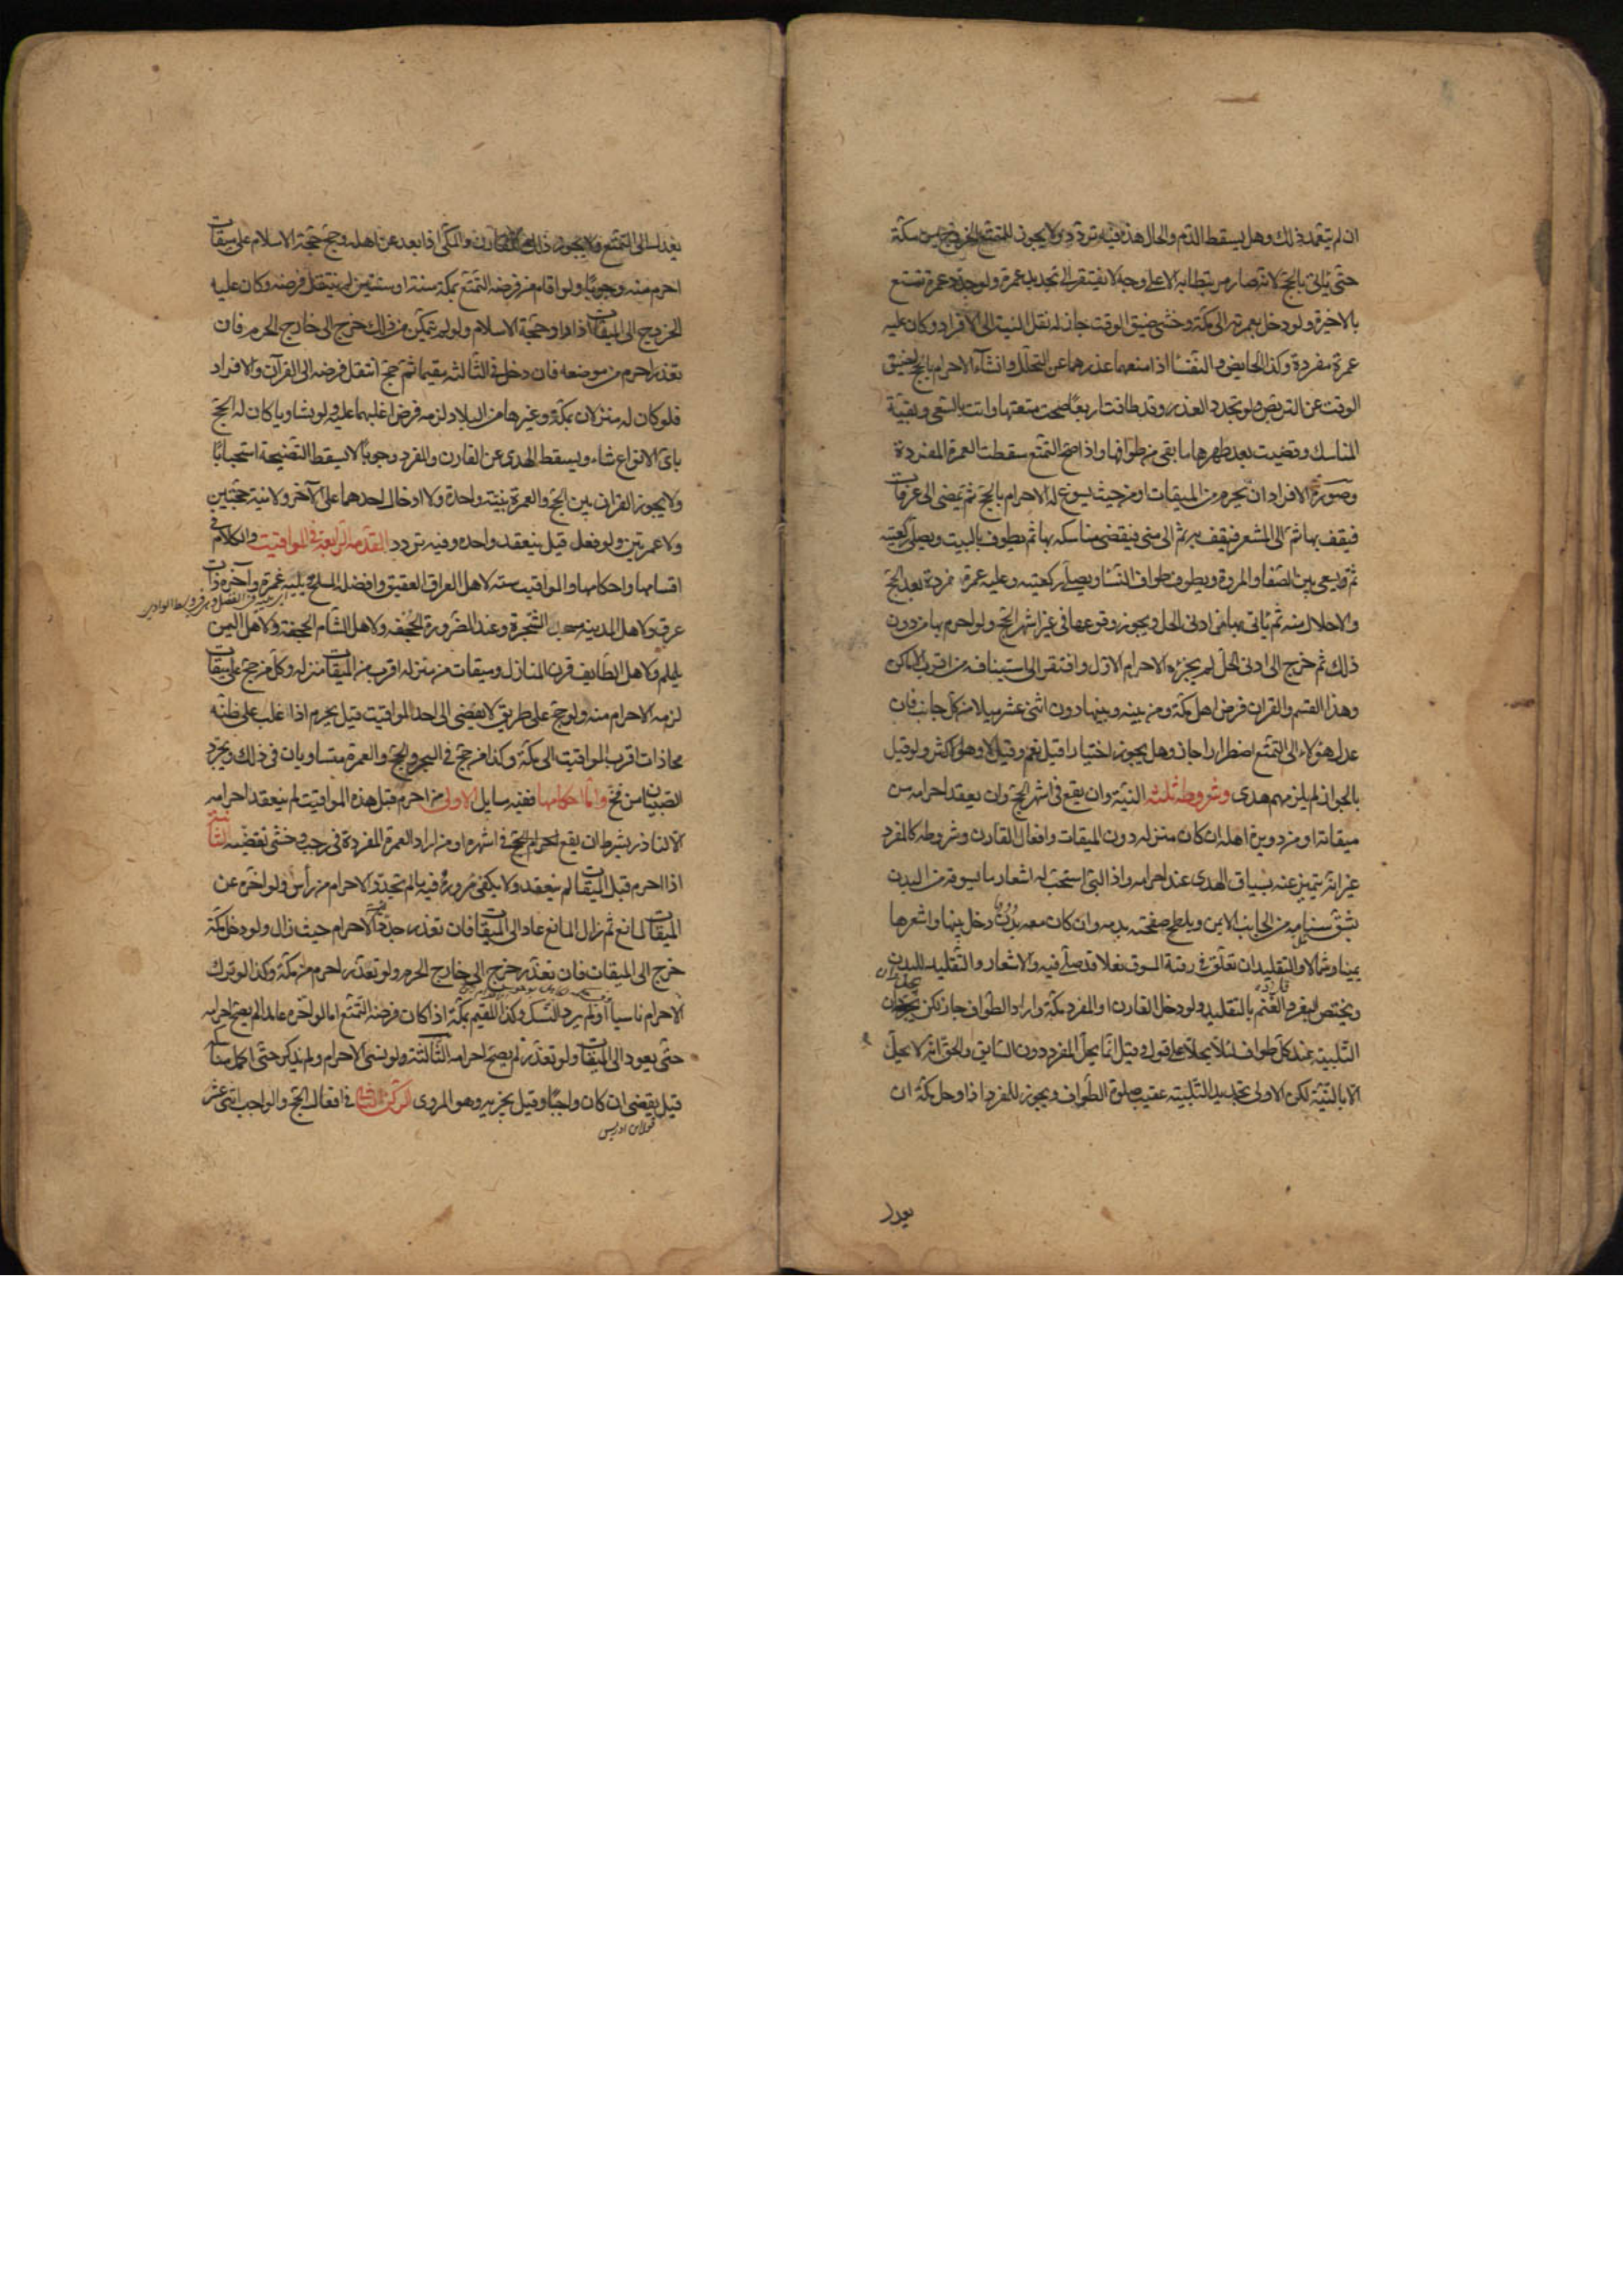 ان لم يتعمد ذلك وهل يسقط الدم والحال هذه فيه تردد ولا يجوز للمتمتع الخروج من مكة
حتى يأتي بالحج لانه صار مرتبطا به الا على وجه لا يفتقر الى تجديد عمرة ولو جدد عمرة تمتع
بالاخيرة ولو دخل بعمرته الى مكة وخشى ضيق الوقت جاز له نقل النية الى الافراد وكان عليه
عمرة مفردة وكذا الحايض والنفسا اذا منعهما عذرهما عن التحلل وانشاء الاحرام بالحج لضيق
الوقت عن التربص ولو تجدد العذر وقد طافت اربعا صحت متعتها واتت بالسعى وبقية
المناسك وقضيت بعد طهرها ما بقى من طوافها واذا صح التمتع سقطت العمرة المفردة
وصورة الافراد ان يحرم من الميقات او من حيث يسوغ له الاحرام بالحج ثم يمضى الى عرفات
فيقف بها ثم الى المشعر فيقف به ثم الى منى فيقضى مناسكه بها ثم يطوف بالبيت ويصلى ركعتيه
ثم يسعى بين الصفا والمروة ويطوف طواف النسا ويصلى ركعتيه وعليه عمرة مفردة بعد الحج
والاحلال منه ثم ياتى بها من ادنى الحل ويجوز وقوعها فى غير اشهر الحج ولو احرم بها من دون
ذلك ثم خرج الى ادنى الحل لم يجزئه الاحرام الاول وافتقر الى استينافه من اقرب الاماكن
وهذا القسم والقران فرض اهل مكة ومن بينه وبينها دون اثنى عشر ميلا من كل جانب فان
عدل هؤلاء الى التمتع اضطرارا جاز وهل يجوز اختيارا قيل نعم وقيل لا وهو الاكثر ولو قيل
بالجواز لم يلزمهم هدى وشروطه ثلثه النية وان يقع فى اشهر الحج وان يعقد احرامه من
ميقاته او من دويرة اهله ان كان منزله دون الميقات وافعال القارن وشروطه كالمفرد
غير انه يتميز عنه بسياق الهدى عند احرامه واذا لبى استحب له اشعار ما يسوقه من البدن
بشق سنامه من الجانب الايمن ويلطخ صفحته بدمه وان كان معه بدن دخل بينها واشعرها
يمينا وشمالا والتقليد ان تعلق فى رقبة المسوق نعلا قد صلى فيه والاشعار والتقليد للبدن
ويختص البقر والغنم بالتقليد ولو دخل القارن او المفرد مكة واراد الطواف جاز لكن يجددان
التلبية عند كل طواف لئلا يحلا على قول وقيل انما يحل المفرد دون السايق والحق انه لا يحل
الا بالنية لكن الاولى تجديد التلبية عقيب صلوة الطواف ويجوز للمفرد اذا دخل مكة ان
يعدل
يعدل الى التمتع ولا يجوز ذلك للقارن والمكى اذا بعد عن اهله وحج حجة الاسلام على ميقات
احرم منه وجوبا ولو اقام من فرضه التمتع بمكة سنة او سنتين لم ينتقل فرضه وكان عليه
الخروج الى الميقات اذا اراد حجة الاسلام ولو لم يتمكن من ذلك خرج الى خارج الحرم فان
تعذر احرم من موضعه فان دخل فى الثالثه مقيما ثم حج انتقل فرضه الى القرآن والافراد
فلو كان له منزلان بمكة وغيرها من البلاد لزمه فرض اغلبهما عليه ولو تساويا كان له الحج
باى الانواع شاء ويسقط الهدى عن القارن والمفرد وجوبا لا يسقط التضحية استحبابا
ولا يجوز القران بين الحج والعمرة بنية واحدة ولا ادخال احدهما على الآخر ولا نية حجتين
ولا عمرتين ولو فعل قيل ينعقد واحده وفيه تردد المقدمه الرابعة فى المواقيت والكلام فى
اقسامها واحكامها والمواقيت سته لاهل العراق العقيق وافضله المسلخ يليه غمرة وآخره ذات
عرق ولاهل المدينه مسجد الشجرة وعند الضرورة الجحفه ولاهل الشام الجحفة ولاهل اليمن
يلملم ولاهل الطايف قرن المنازل وميقات من منزله اقرب من الميقات منزله وكل من حج على ميقات
لزمه الاحرام منه ولو حج على طريق لا يفضى الى احد المواقيت قيل يحرم اذا غلب على ظنه
محاذات اقرب المواقيت الى مكة وكذا من حج فى البحر والحج والعمرة متساويان فى ذلك ويجرد
الصبيان من فخ واما احكامها ففيه مسايل الاولى من احرم قبل هذه المواقيت لم ينعقد احرامه
الا لناذر بشرط ان يقع احرام الحج فى اشهره او من اراد العمرة المفردة فى رجب وخشى تقضيه الثانية
اذا احرم قبل الميقات لم ينعقد ولا يكفى مروره فيه ما لم يجدد الاحرام من رأس ولو اخره عن
الميقات لمانع ثم زال المانع عاد الى الميقات فان تعذر جدد الاحرام حيث زال ولو دخل مكة
خرج الى الميقات فان تعذر خرج الى خارج الحرم ولو تعذر احرم من مكة وكذا لو ترك
الاحرام ناسيا او لم يرد النسك وكذا المقيم بمكة اذا كان فرضه التمتع اما لو اخره عامدا لم يصح احرامه
حتى يعود الى الميقات ولو تعذر لم يصح احرامه الثالثة ولو نسى الاحرام ولم يذكر حتى اكمل مناسكه
قيل يقضى ان كان واجبا وقيل يجزيه وهو المروى الركن الثانى فى افعال الحج والواجب اثنى عشر
قول ابن ادريس